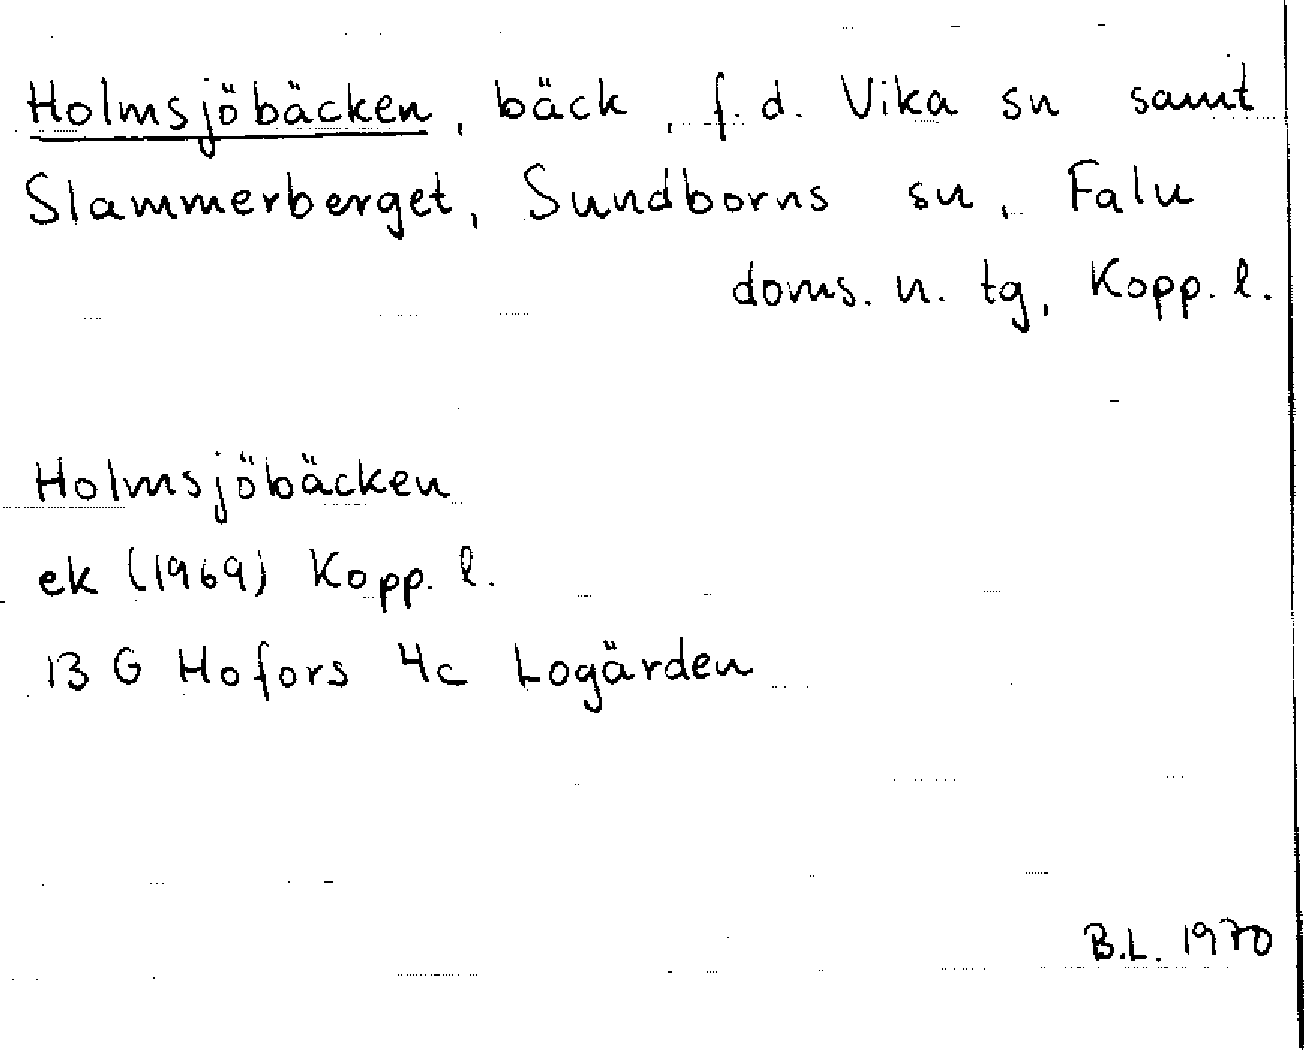 Holmsjöbäcken, bäck, f.d. Vika sn samt
Slammerberget, Sundborns sn, Falu
doms. n. tg, Kopp. l.
Holmsjöbäcken
ek (1969) Kopp. l.
13 G Hofors 4c Logärden
B.L. 1970